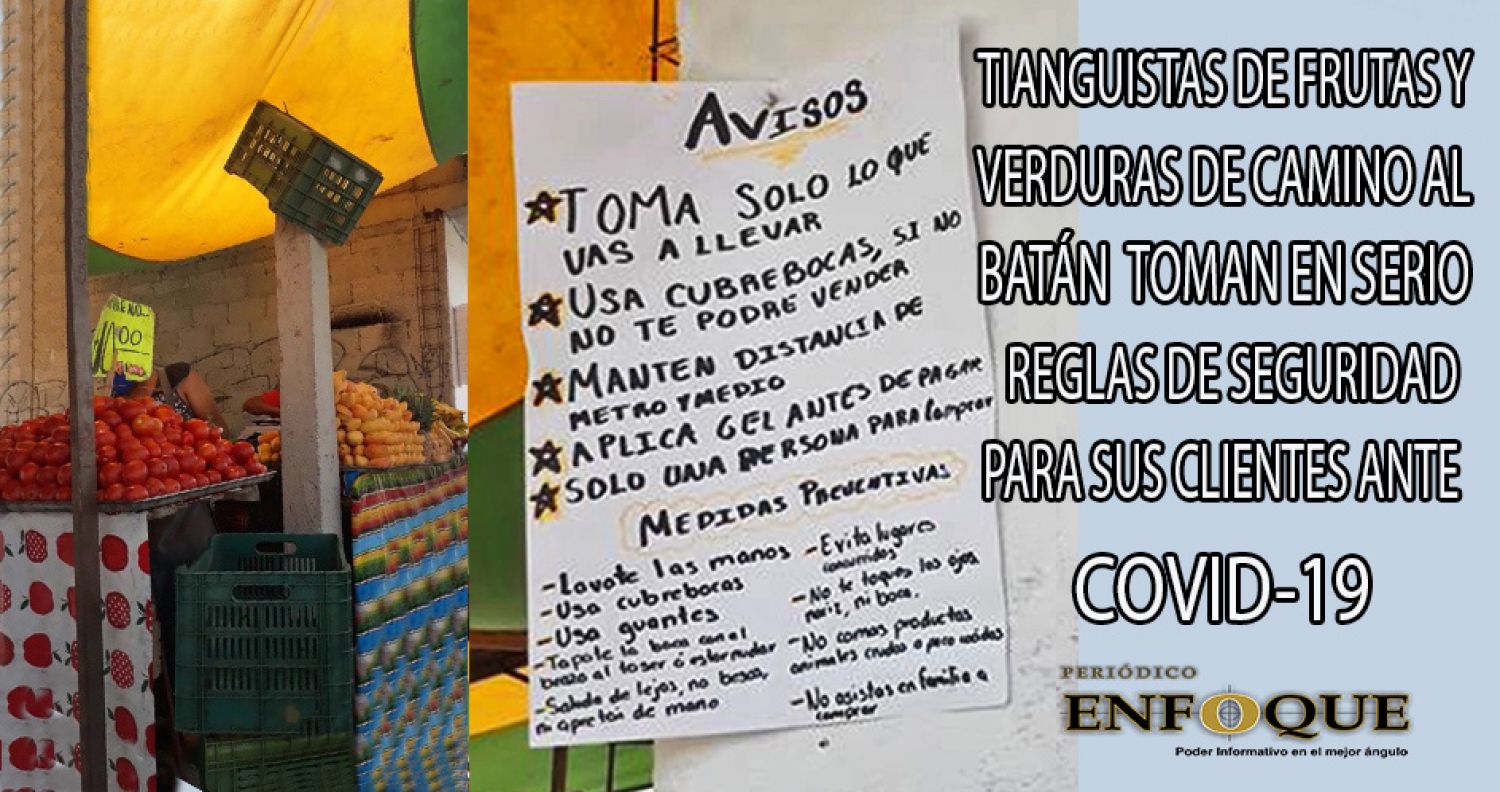 RE NO...
00
AVISOS
TOMA SOLO LO QUE
VAS A LLEVAR
USA CUBREBOCAS, SI NO
NO TE PODRE VENDER
MANTEN DISTANCIA DE
METRO Y MEDIO
APLICA GEL ANTES DE PAGAR
SOLO UNA PERSONA PARA Comprar
MEDIDAS PREVENTIVAS
- Lavate las manos
- Usa cubrebocas
- Usa guantes
- Tapate la boca con el
brazo al toser ó estornudar
- Saluda de lejos, no besos,
ni apretón de mano
- Evita lugares
concurridos
- No te toques los ojos
nariz, ni boca.
- No comas productos
animales crudos o poco cocidos
- No asistas en familia a
comprar
TIANGUISTAS DE FRUTAS Y
VERDURAS DE CAMINO AL
BATÁN TOMAN EN SERIO
REGLAS DE SEGURIDAD
PARA SUS CLIENTES ANTE
COVID-19
PERIÓDICO
ENFOQUE
Poder Informativo en el mejor ángulo